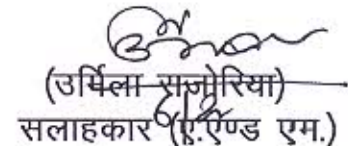 (उर्मिला राजोरिया)
6/2
सलाहकार (ए.एण्ड एम.)